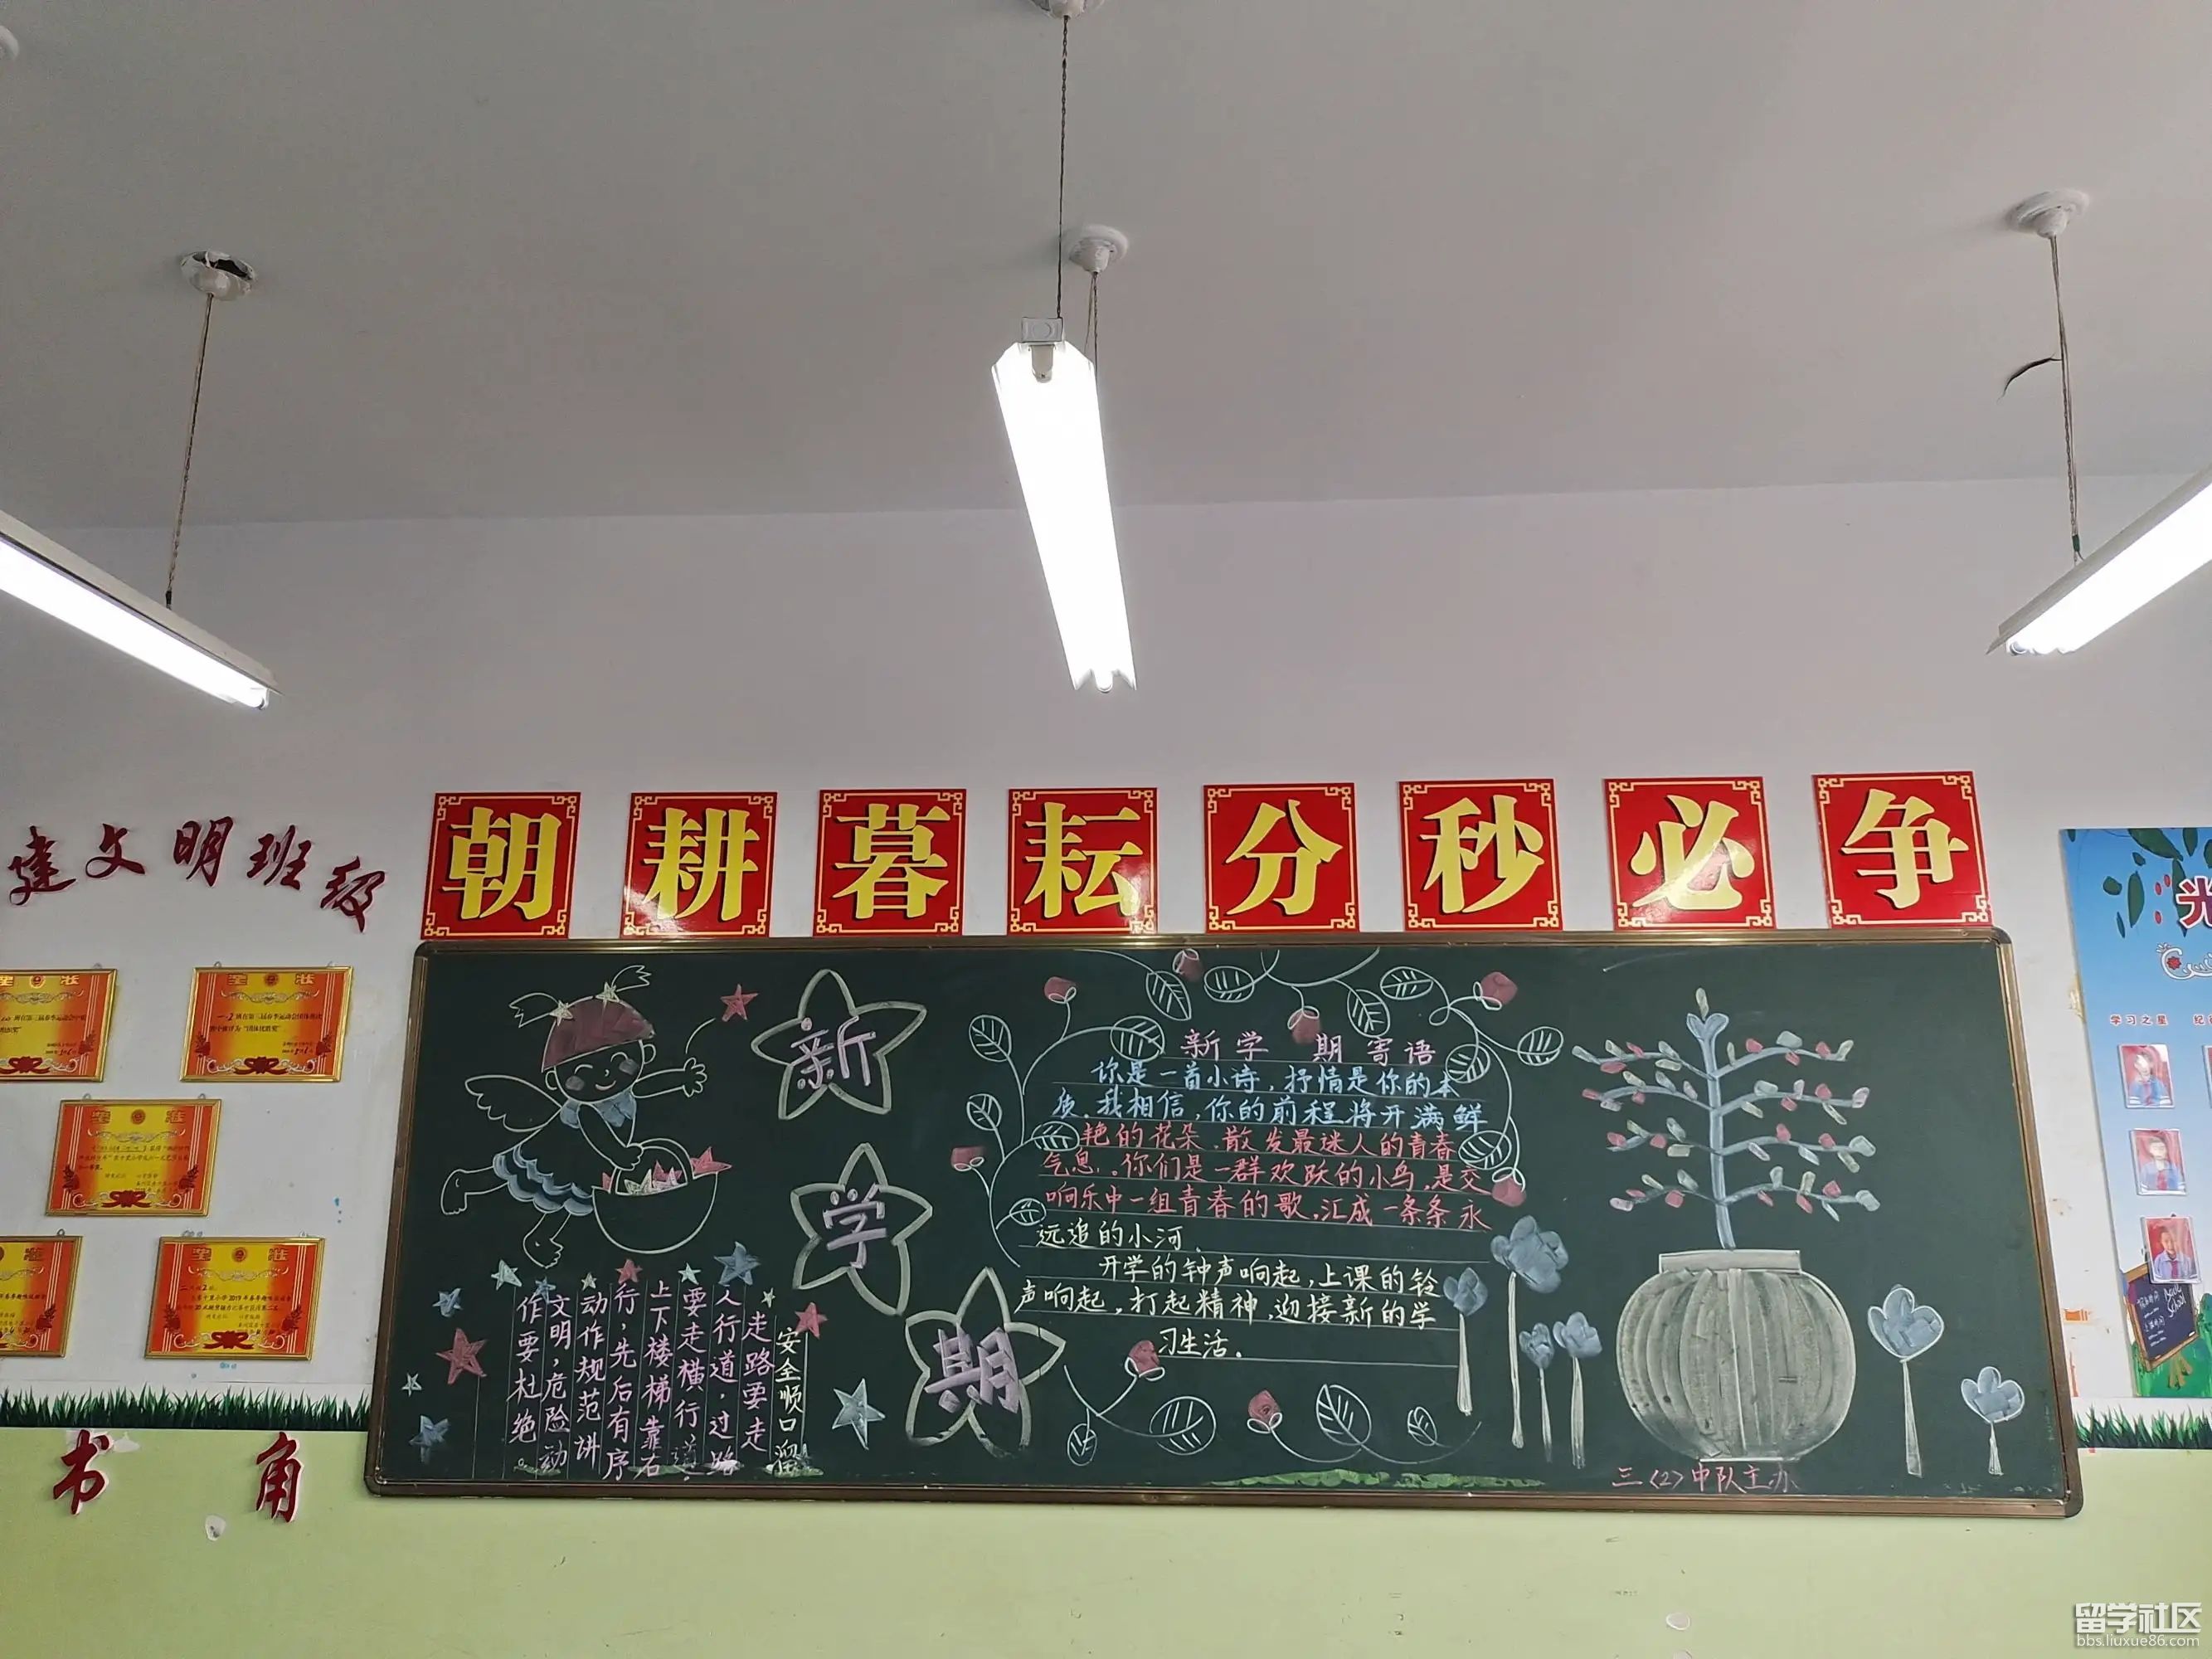 朝耕暮耘分秒必争
建文明班级
新学期
新学 期寄语
你是一首小诗，抒情是你的本
质．我相信，你的前程将开满鲜
艳的花朵．散发最迷人的青春
气息．．你们是一群欢跃的小鸟，是交
响乐中一组青春的歌，汇成一条条永
远追的小河．
开学的钟声响起，上课的铃
声响起，打起精神，迎接新的学
习生活．
安全顺口溜
走路要走
人行道，过路
要走横行道．
上下楼梯靠右
行，先后有序
动作规范讲
文明，危险动
作要杜绝。
三〈2〉中队主办
书 角
光
学习之星
纪
留学社区
bbs.liuxue86.com